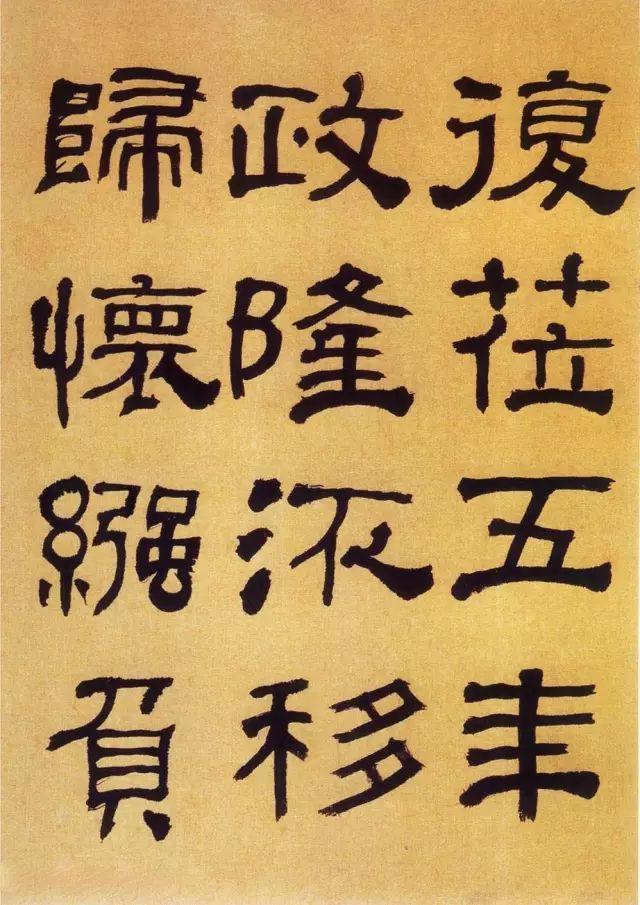 復莅五年
政隆沠移
歸懷繈負